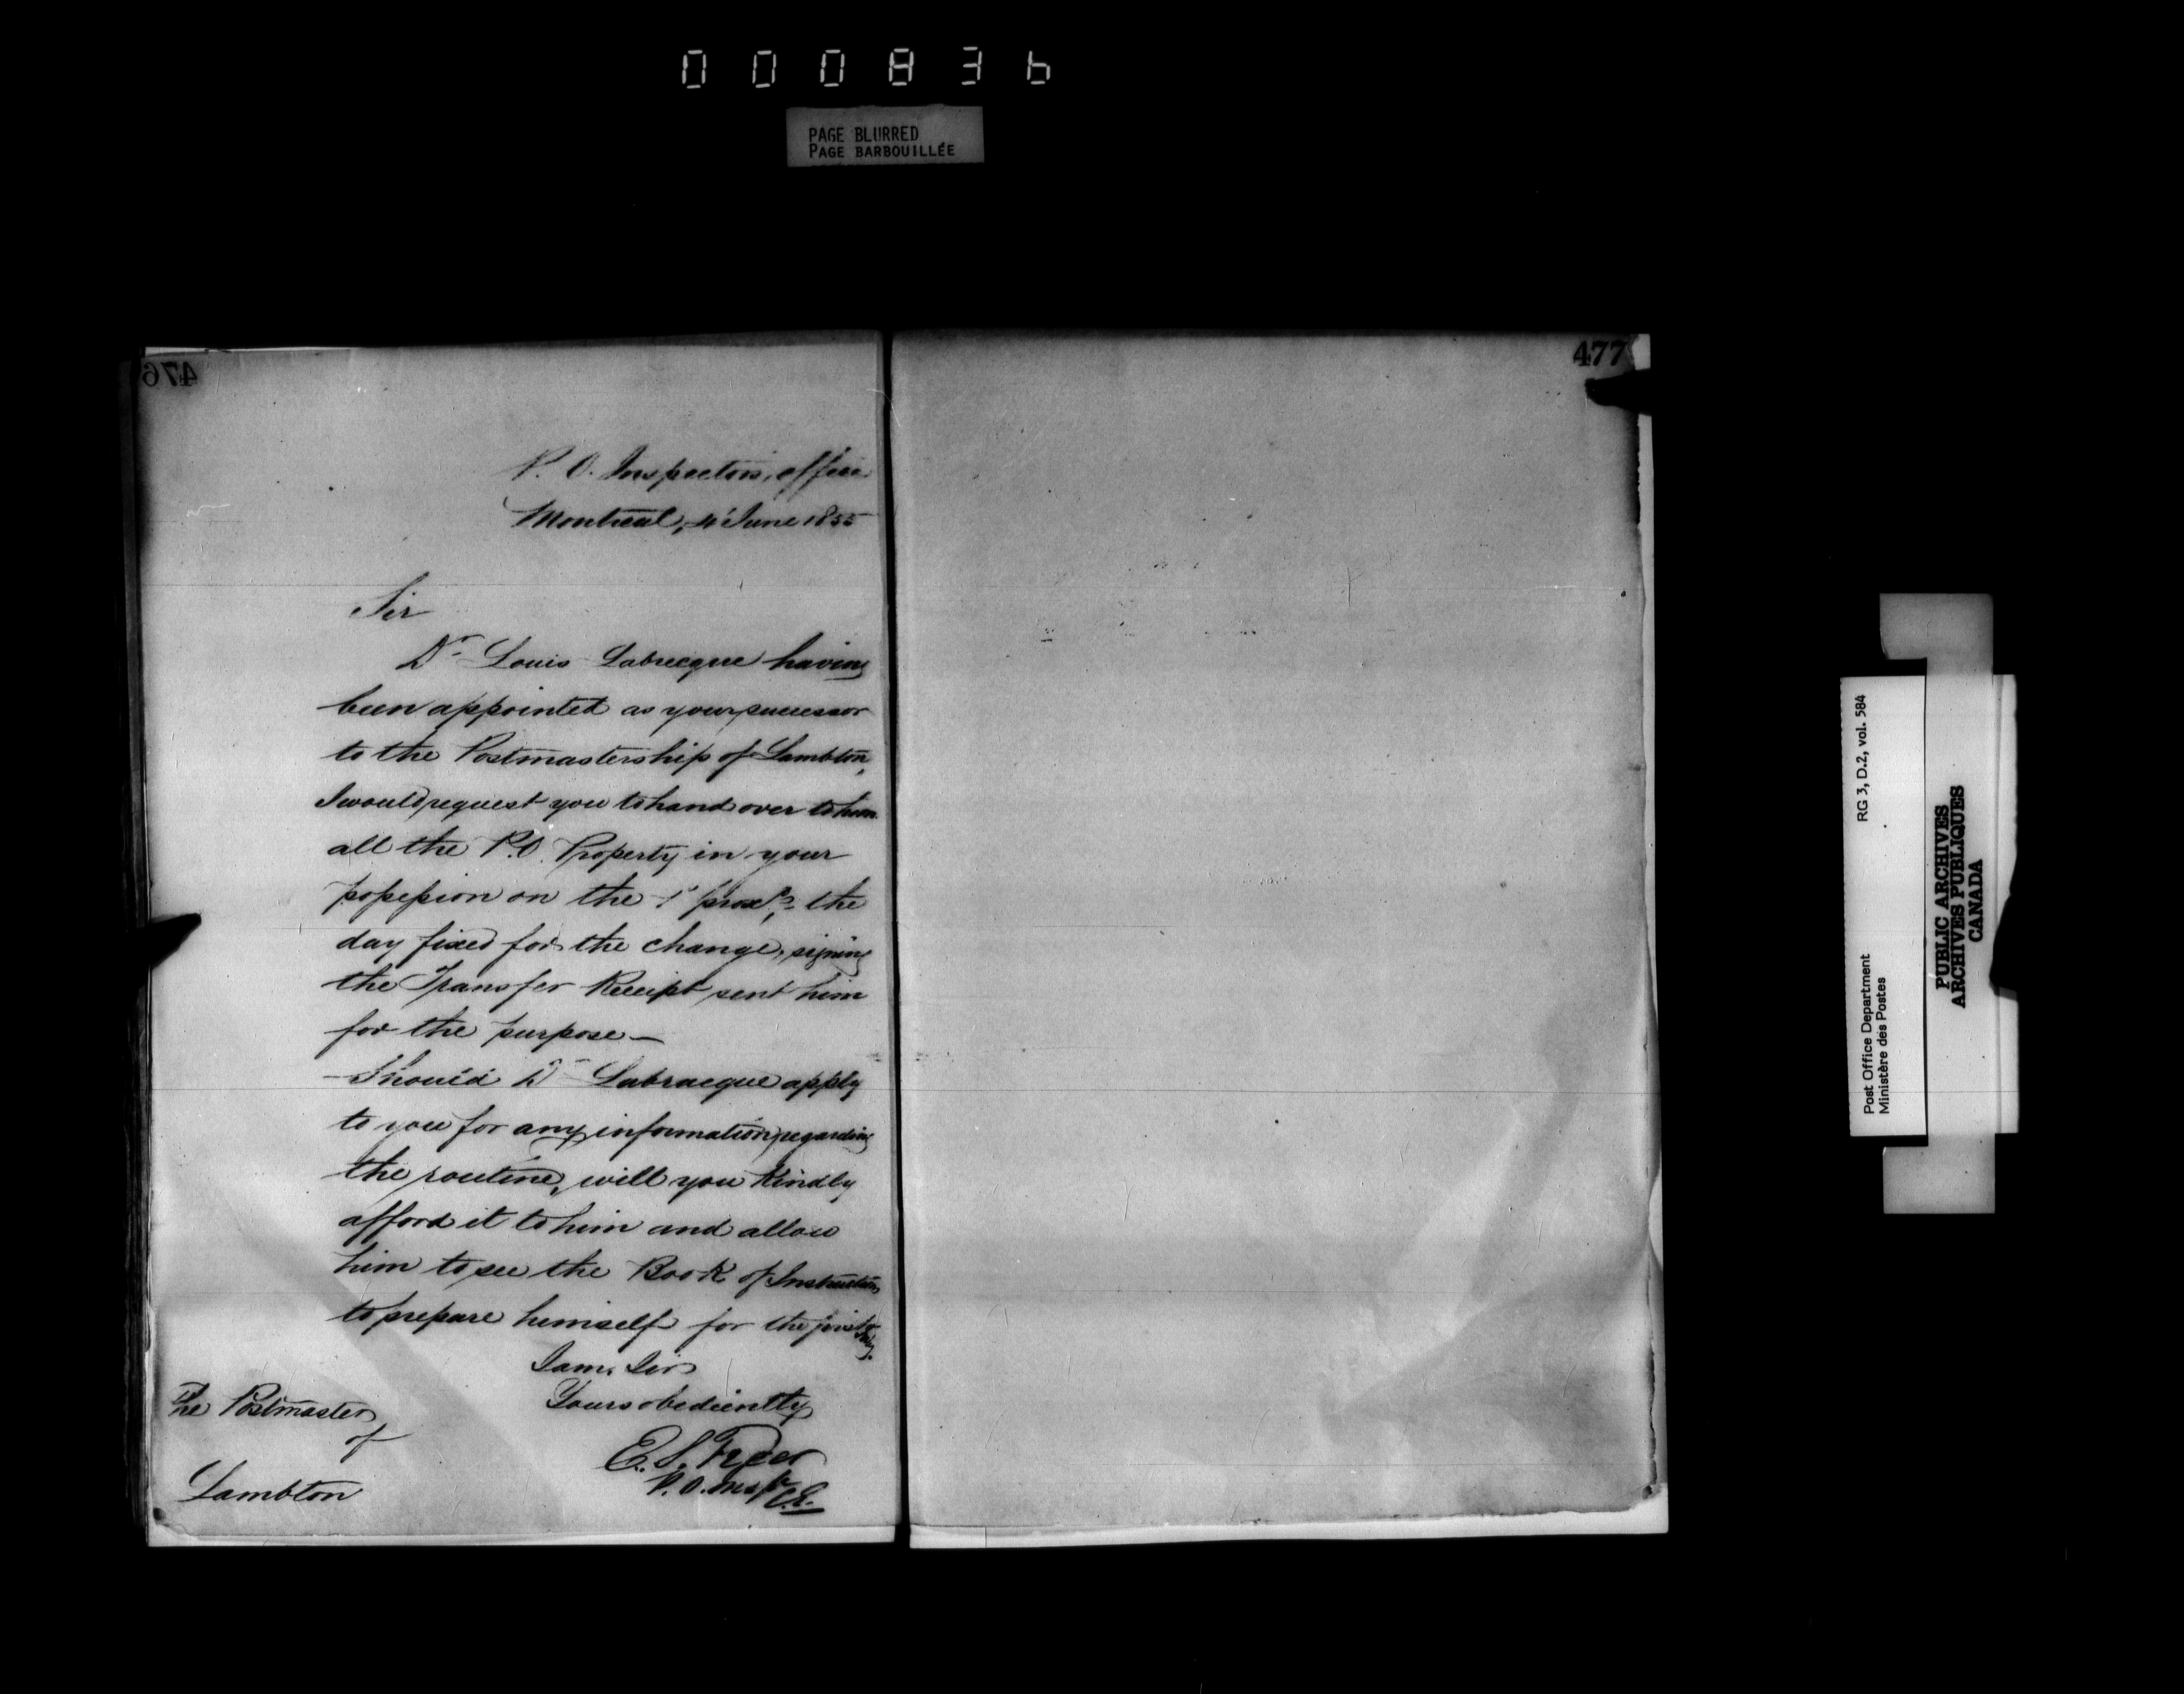 000836
PAGE BLURRED
PAGE BARBOUILLÉE
476
P. O. Inspectors, office
Montreal, 4' June 1855
Sir
Dr Louis Labrecque having
been appointed as your successor
to the Postmastership of Lambton,
I would request you to hand over to him
all the P.O. Property in your
possession on the 1' proxo, the
day fixed for the change, signing
the Transfer Receipt sent him
for the purpose—
Should Dr Labracque apply
to you for any information regarding
the routine, will you kindly
afford it to him and allow
him to see the Book of Instructions
to prepare himself for the
I am, Sir
Yours obediently
E. S. Freer
P. O. Inspr C.E.
The Postmaster
of
Lambton
477
Post Office Department RG 3, D.2, vol. 584
Ministère des Postes
PUBLIC ARCHIVES
ARCHIVES PUBLIQUES
CANADA